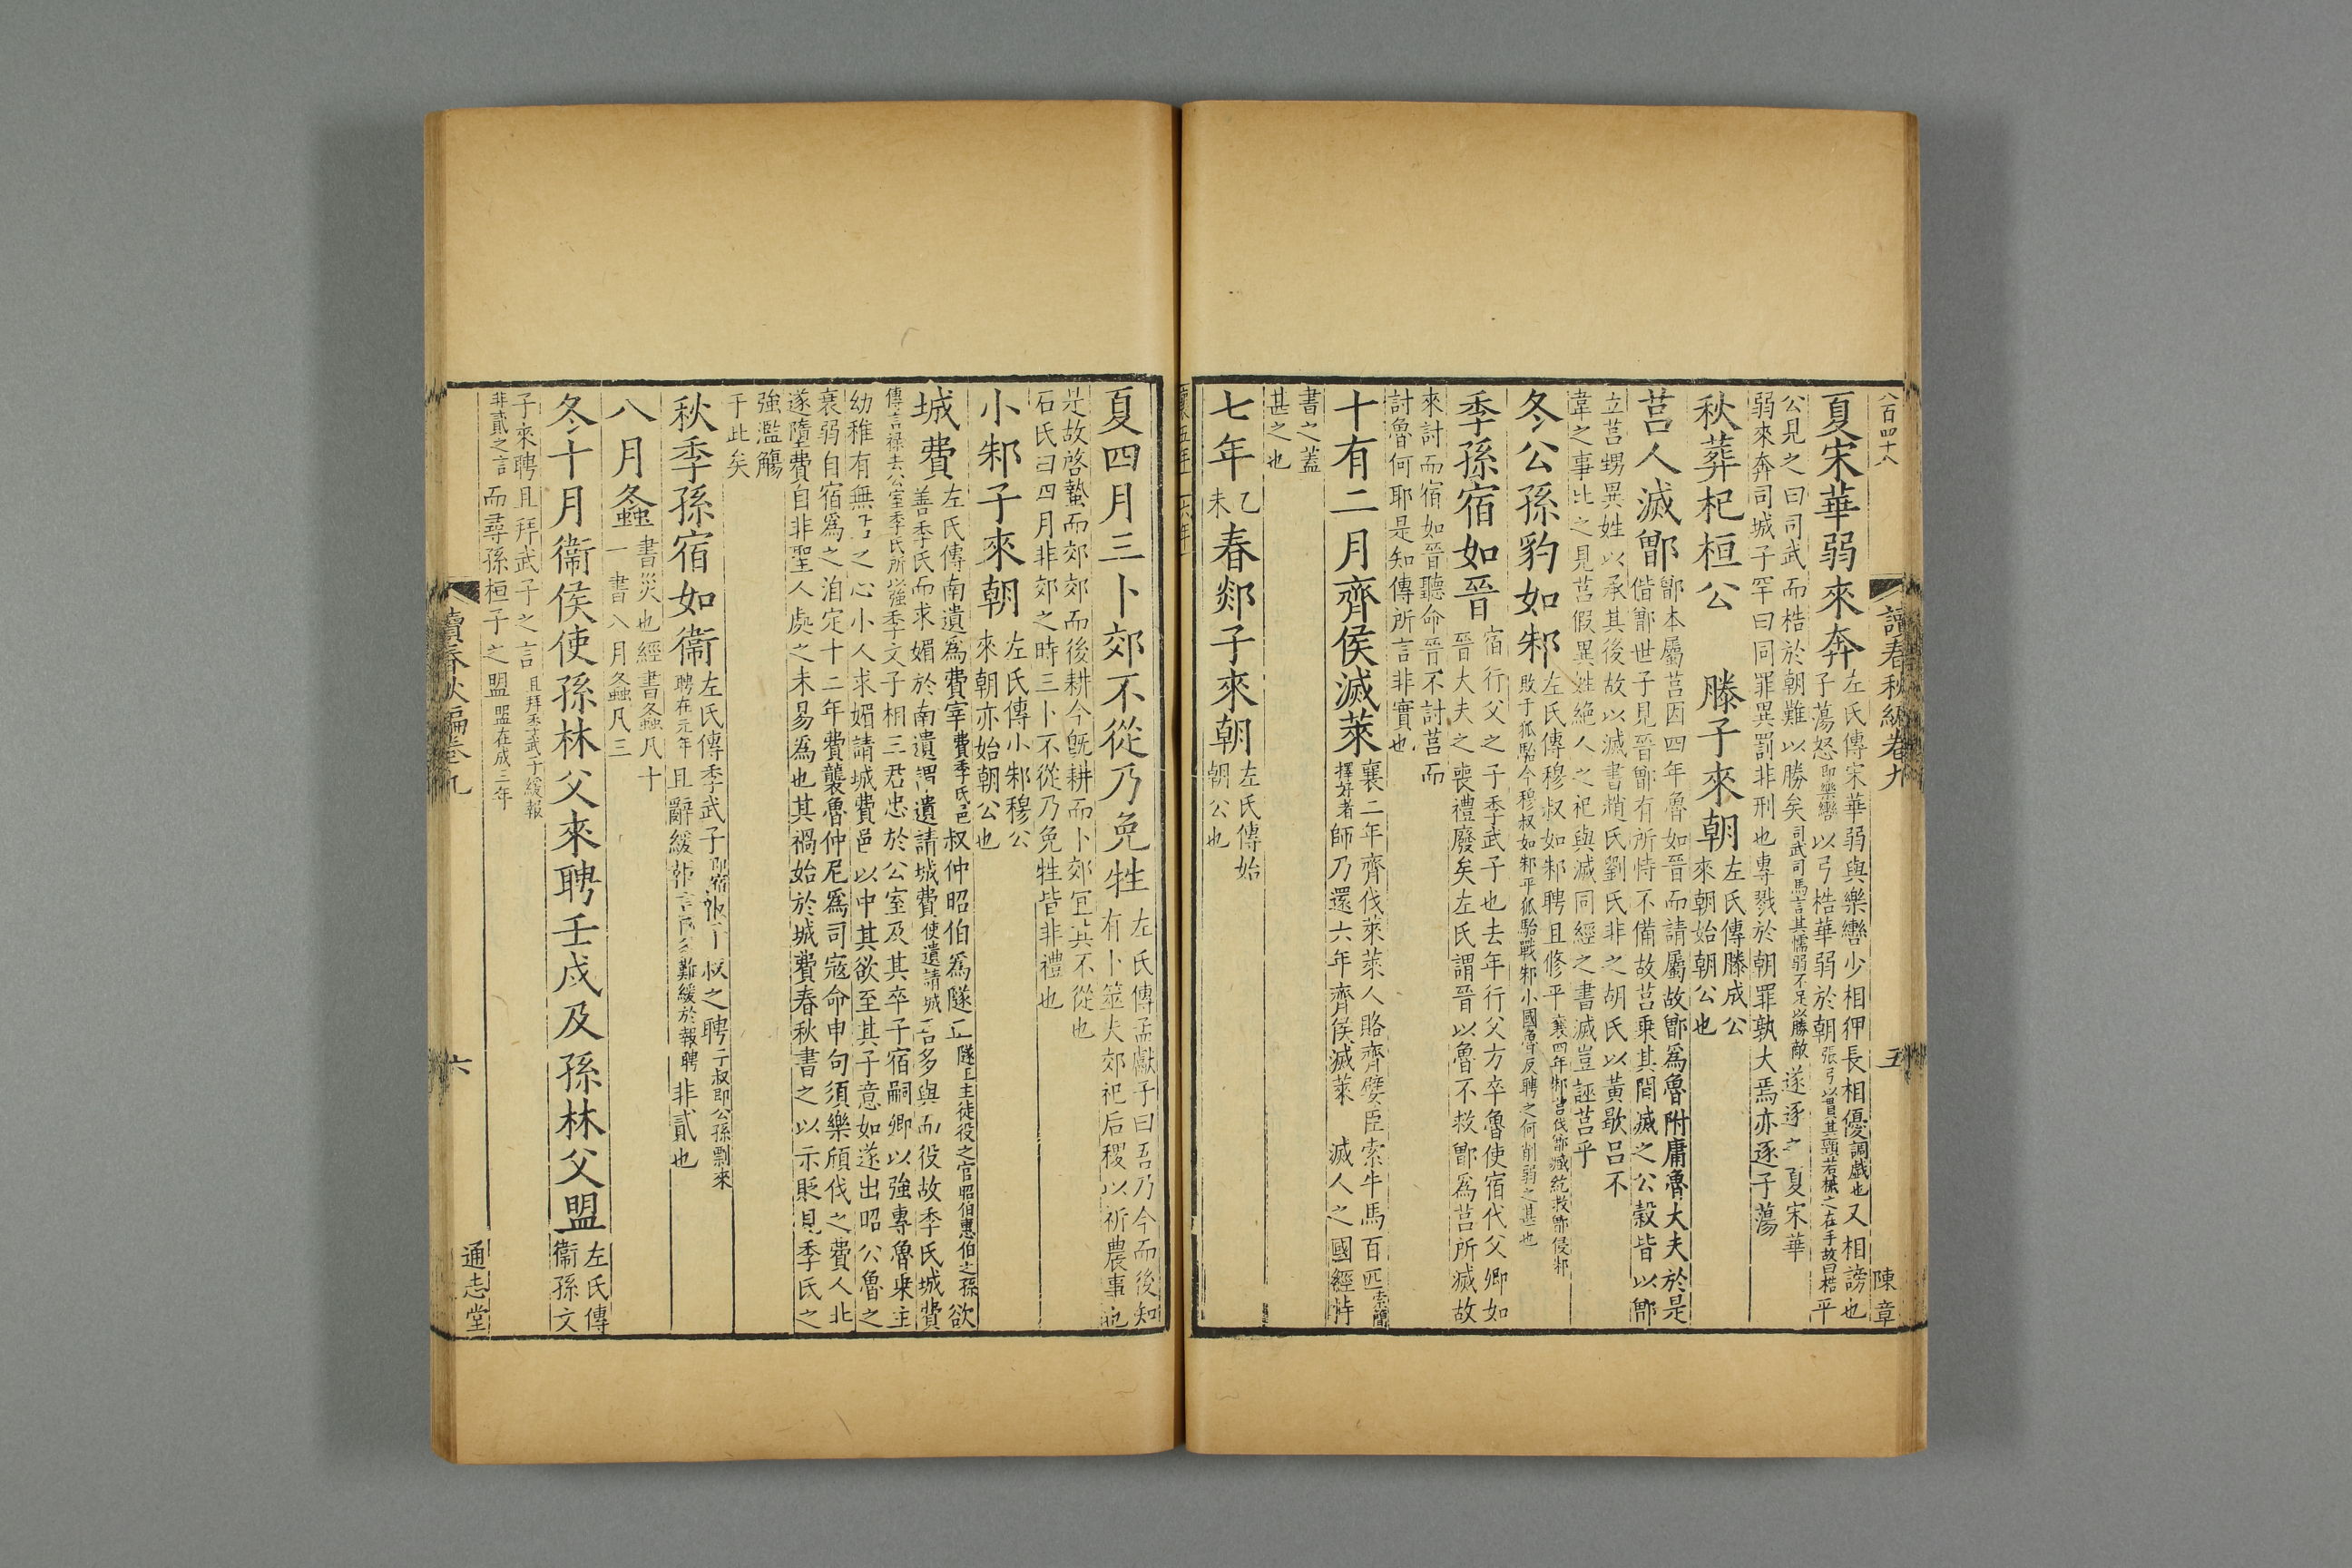 八百四十八
讀春秋編卷九
五
陳章
夏宋華弱來奔
左氏傳宋華弱與樂轡少相狎長相優調戲也又相謗也
子蕩怒即樂轡以弓梏華弱於朝張弓以貫其頸若械之在手故曰梏平
公見之曰司武而梏於朝難以勝矣司武司馬言其懦弱不足以勝敵遂逐之夏宋華
弱來奔司城子罕曰同罪異罰非刑也專戮於朝罪孰大焉亦逐子蕩
秋葬杞桓公
滕子來朝
左氏傳滕成公
來朝始朝公也
莒人滅鄫
鄫本屬莒因四年魯如晉而請屬故鄫為魯附庸魯大夫於是
偕鄫世子見晉鄫有所恃不備故莒乗其間滅之公穀皆以鄫
立莒甥異姓以承其後故以滅書趙氏劉氏非之胡氏以黃歇呂不
韋之事比之見莒假異姓絶人之祀與滅同經之書滅豈誣莒乎
冬公孫豹如邾
左氏傳穆叔如邾聘且修平襄四年邾莒伐鄫臧紇救鄫侵邾
敗于狐駘今穆叔如邾平狐駘戰邾小國魯反聘之何削弱之甚也
季孫宿如晉
宿行父之子季武子也去年行父方卒魯使宿代父卿如
晉大夫之喪禮廢矣左氏謂晉以魯不救鄫為莒所滅故
來討而宿如晉聽命晉不討莒而
討魯何耶是知傳所言非實也
十有二月齊侯滅萊
襄二年齊伐萊萊人賂齊嬖臣索牛馬百匹索簡
擇好者師乃還六年齊侯滅萊 滅人之國經特
書之蓋
甚之也
七年乙未春郯子來朝
左氏傳始
朝公也
夏四月三卜郊不從乃免牲
左氏傳孟獻子曰吾乃今而後知
有卜筮夫郊祀后稷以祈農事也
是故啓蟄而郊郊而後耕今既耕而卜郊宜其不從也
石氏曰四月非郊之時三卜不從乃免牲皆非禮也
小邾子來朝
左氏傳小邾穆公
來朝亦始朝公也
城費
左氏傳南遺為費宰費季氏邑叔仲昭伯為隧正隧正主徒役之官昭伯惠伯之孫欲
善季氏而求媚於南遺謂遺請城費使遺請城吾多與而役故季氏城費
傳言禄去公室季氏所以強季文子相三君忠於公室及其卒子宿嗣卿以強專魯乗主
幼稚有無君之心小人求媚請城費邑以中其欲至其子意如遂出昭公魯之
衰弱自宿為之洎定十二年費襲魯仲尼為司寇命申句須樂頎伐之費人北
遂隳費自非聖人處之未易為也其禍始於城費春秋書之以示貶見季氏之
強濫觴
于此矣
秋季孫宿如衞
左氏傳季武子即宿報子叔之聘子叔即公孫剽來
聘在元年且辭緩報言國多難緩於報聘非貳也
八月螽
書災也經書螽凡十
一書八月螽凡三
冬十月衞侯使孫林父來聘壬戌及孫林父盟
左氏傳
衞孫文
子來聘且拜武子之言且拜季武子緩報
非貳之言而尋孫桓子之盟盟在成三年
讀春秋編卷九
六
通志堂